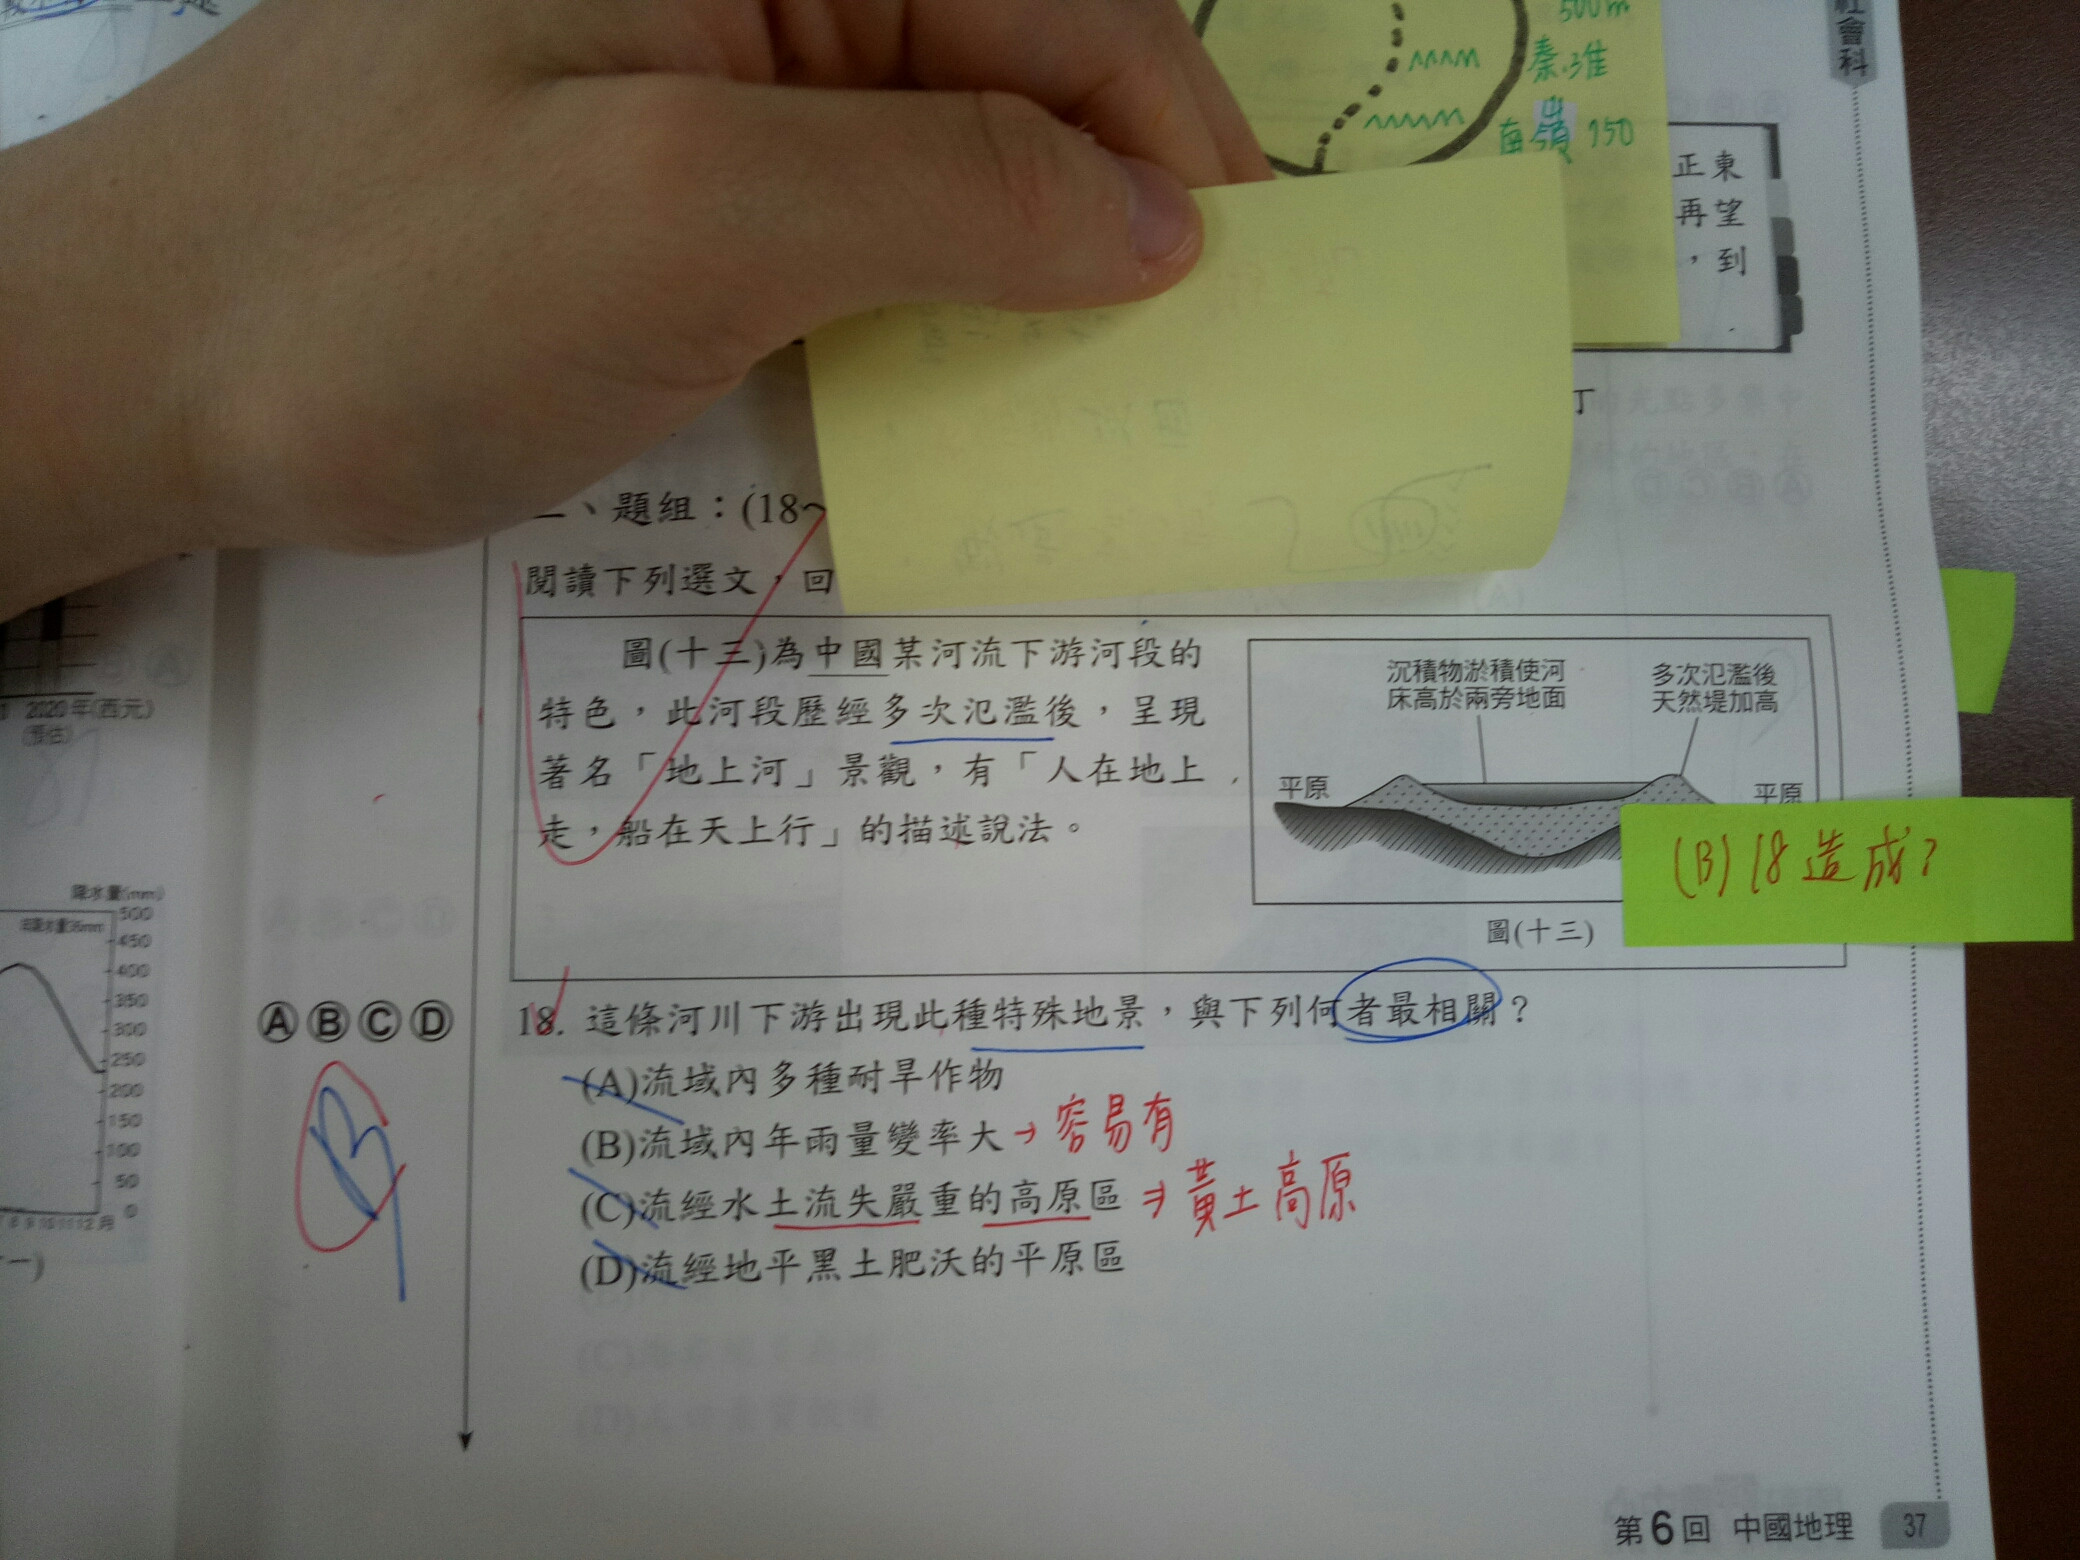 社會科
500m
秦淮
南嶺 750
正東
再望
，到
丁
、題組：(18~
閱讀下列選文，回
圖(十三)為中國某河流下游河段的
特色，此河段歷經多次氾濫後，呈現
著名「地上河」景觀，有「人在地上
走，船在天上行」的描述說法。
沉積物淤積使河
床高於兩旁地面
多次氾濫後
天然堤加高
平原
平原
圖(十三)
(B) 18 造成?
18. 這條河川下游出現此種特殊地景，與下列何者最相關？
(A)流域內多種耐旱作物
(B)流域內年雨量變率大→容易有
(C)流經水土流失嚴重的高原區⇒黃土高原
(D)流經地平黑土肥沃的平原區
Ⓐ Ⓑ Ⓒ Ⓓ
B
2020年(西元)
(預估)
降水量(mm)
500
450
400
350
300
250
200
150
100
50
0
8 9 10 11 12 月
一)
第6回 中國地理 37